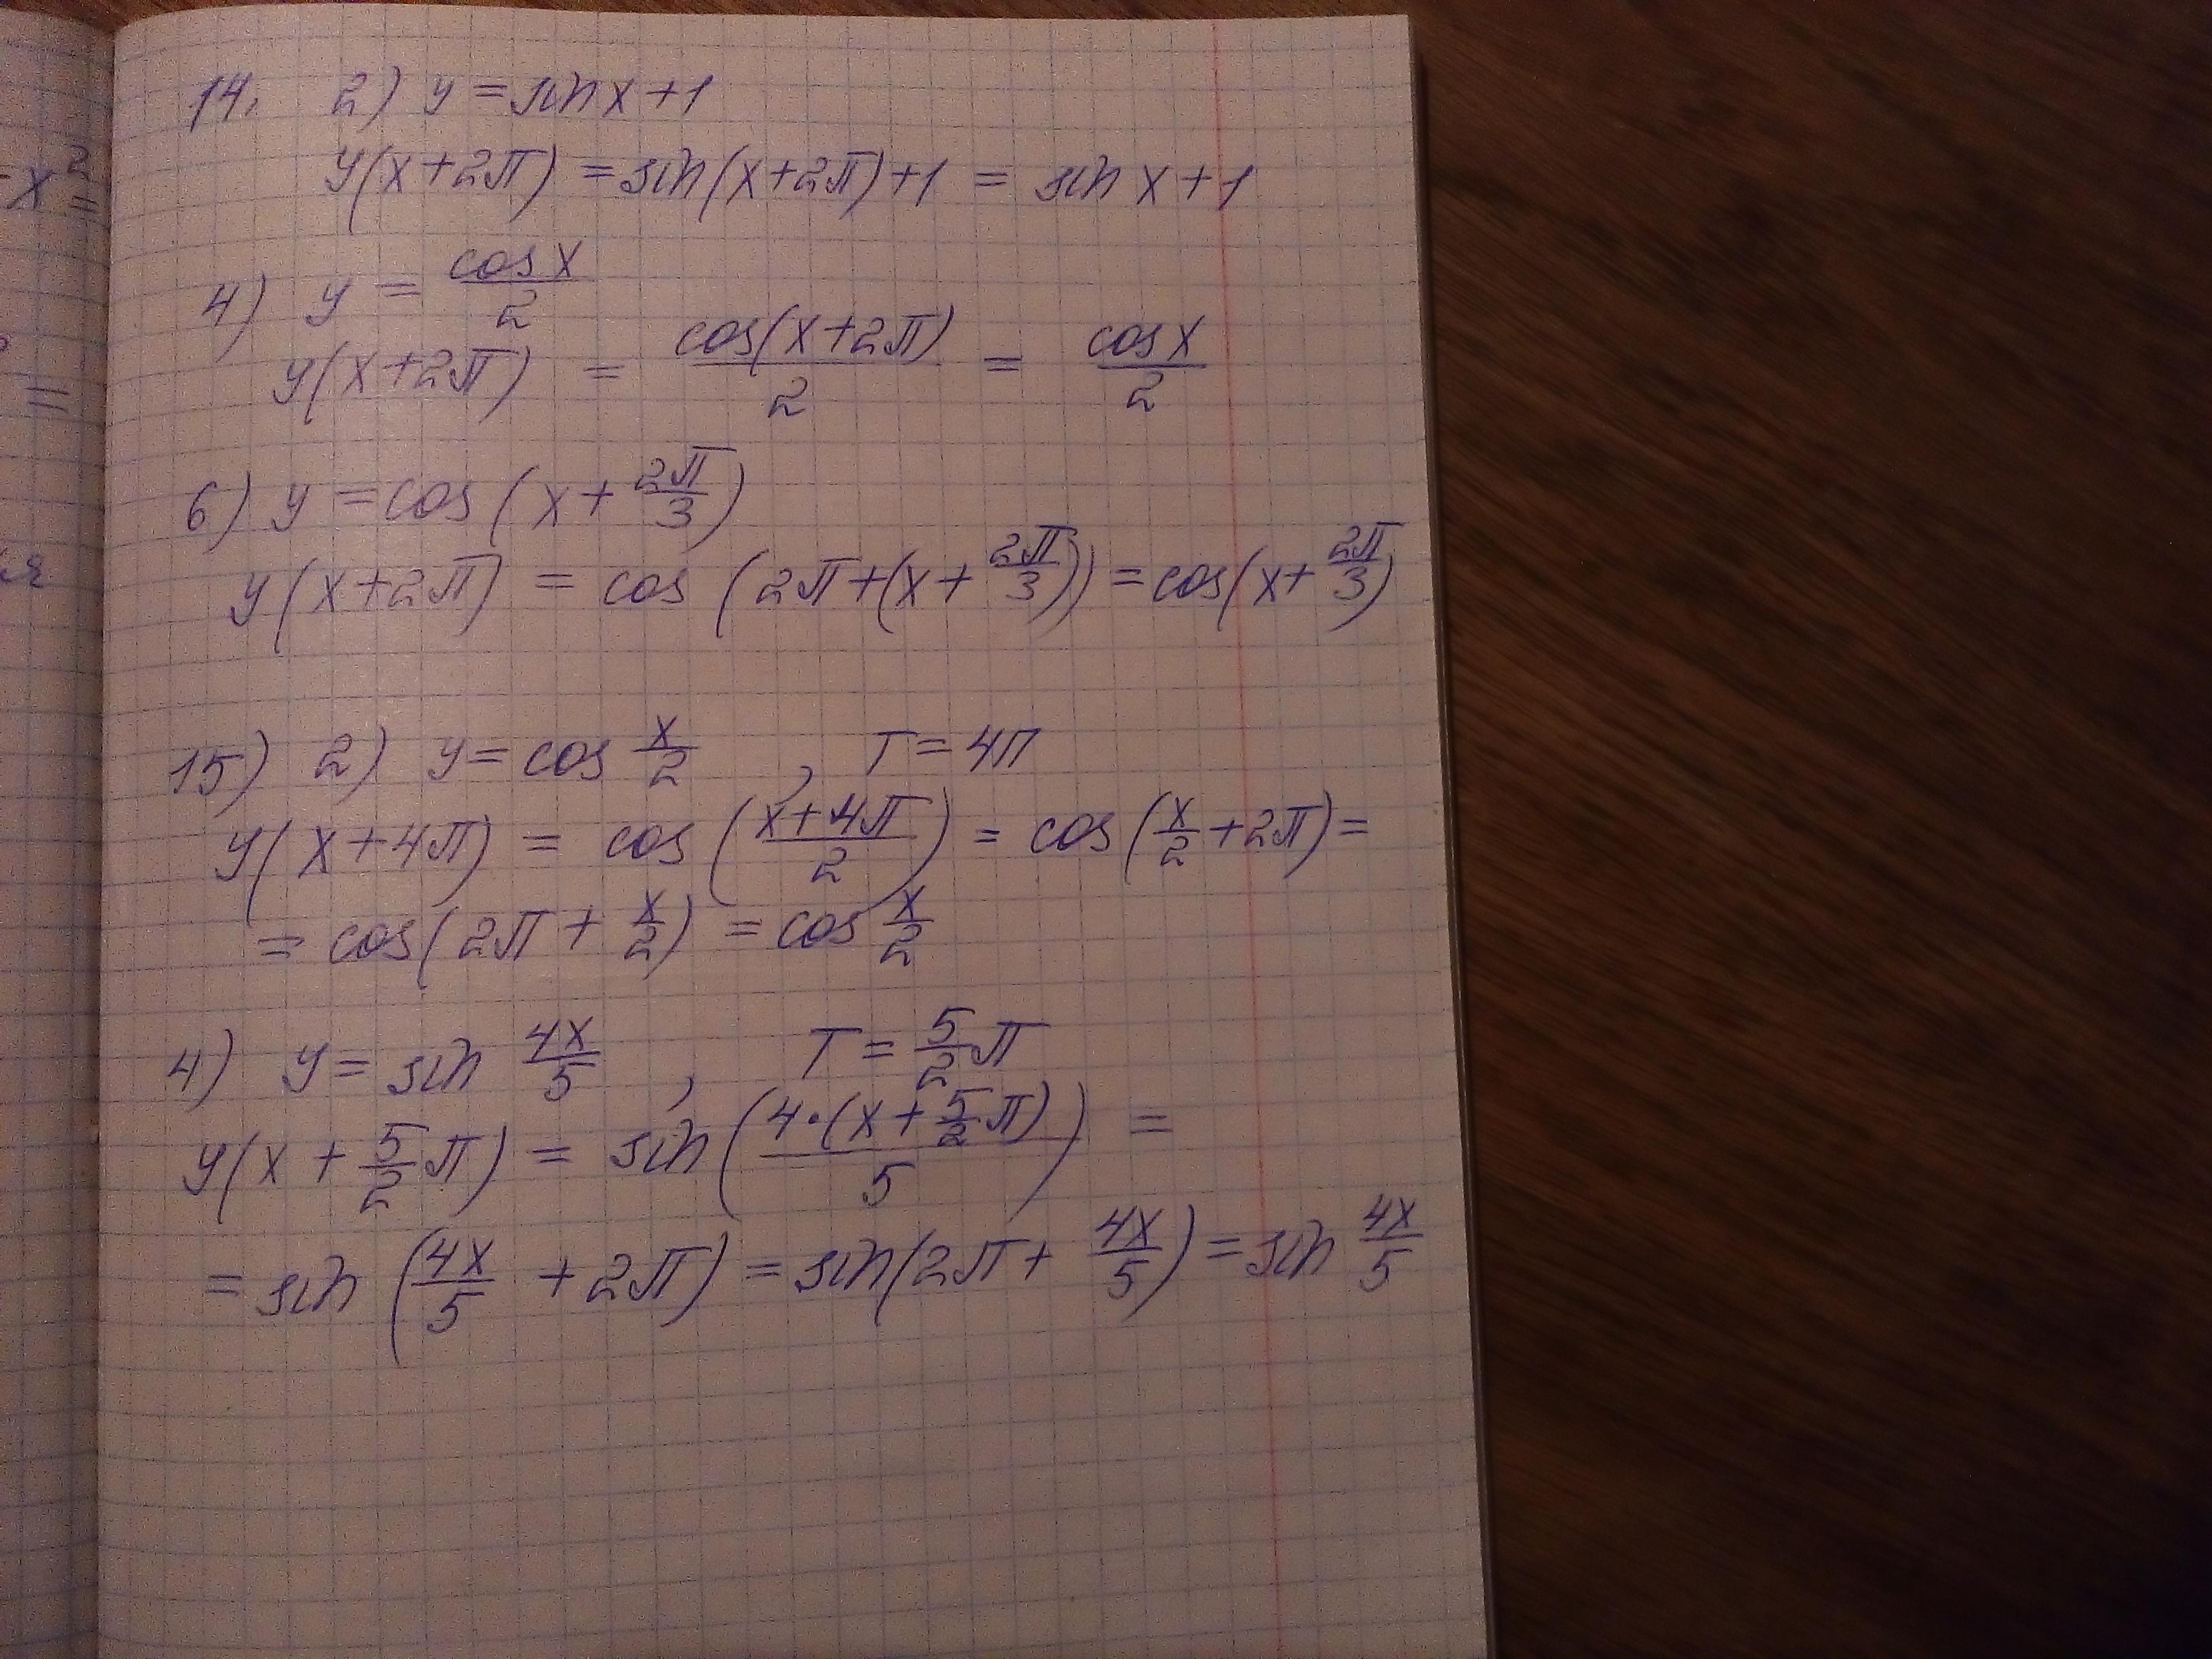 14. 2) y = sin x + 1
y(x+2π) = sin(x+2π)+1 = sin x + 1
4) y = cos x / 2
y(x+2π) = cos(x+2π) / 2 = cos x / 2
6) y = cos (x + 2π/3)
y(x+2π) = cos (2π+(x+ 2π/3)) = cos(x+ 2π/3)
15) 2) y = cos x/2 , T = 4π
y(x+4π) = cos ((x+4π)/2) = cos(x/2 + 2π) =
= cos(2π + x/2) = cos x/2
4) y = sin 4x/5 , T = 5/2 π
y(x + 5/2 π) = sin(4·(x + 5/2 π) / 5) =
= sin (4x/5 + 2π) = sin(2π + 4x/5) = sin 4x/5
- x² =
=